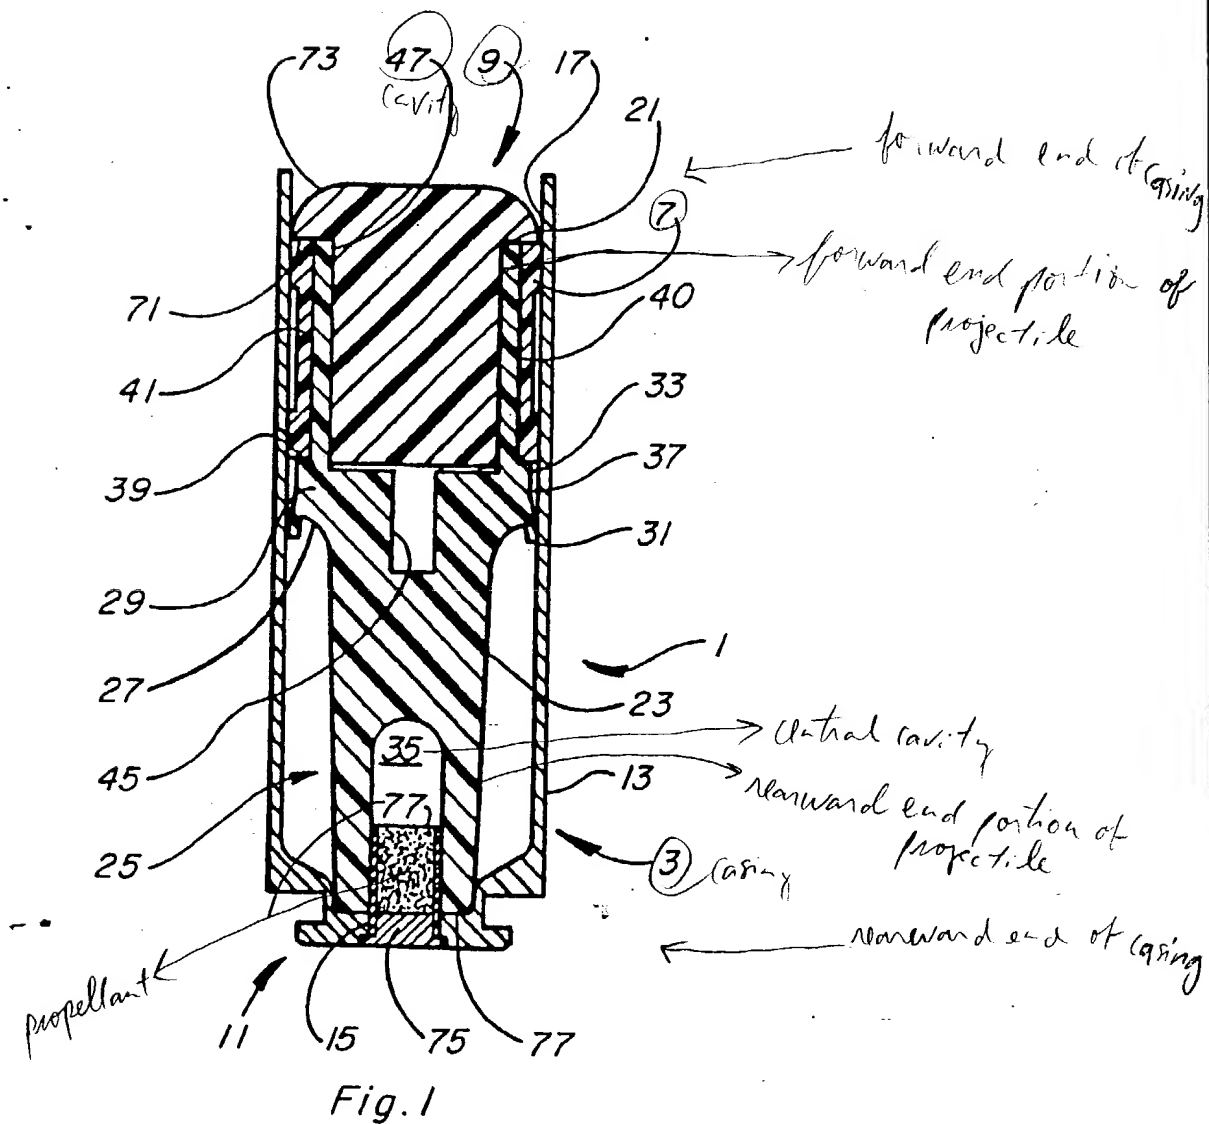 73 47 9 17
cavity
21
forward end of casing
7
forward end portion of
projectile
71
40
41
33
39
37
31
29
1
27
23
central cavity
35
45
13
rearward end portion of
projectile
77
25
3 casing
rearward end of casing
propellant
11 15 75 77
Fig. 1